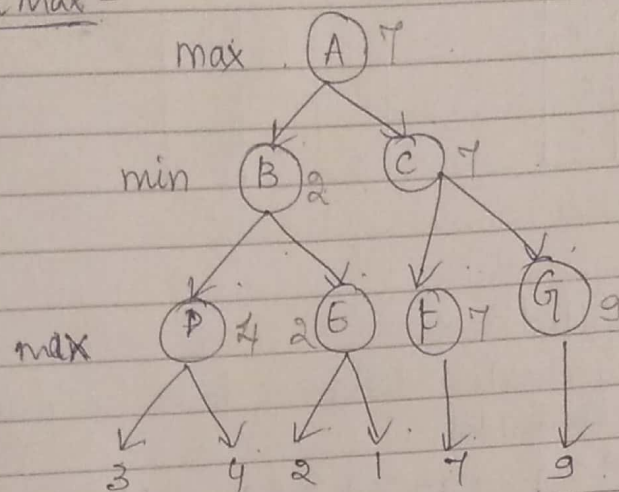 Max
max A 7
min B 2 C 7
max D 4 2 E F 7 G 9
3 4 2 1 7 9